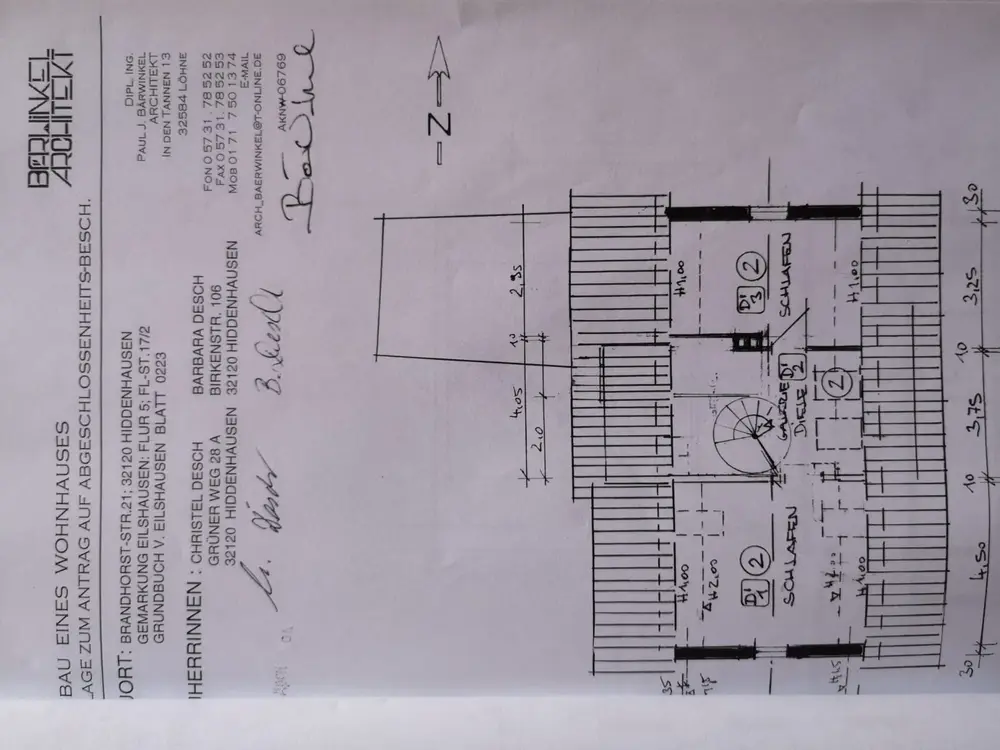 BÄRWINKEL
ARCHITEKT
BAU EINES WOHNHAUSES
AGE ZUM ANTRAG AUF ABGESCHLOSSENHEITS-BESCH.
ORT: BRANDHORST-STR.21; 32120 HIDDENHAUSEN
GEMARKUNG EILSHAUSEN: FLUR 5; FL-ST.17/2
GRUNDBUCH V. EILSHAUSEN BLATT 0223
DIPL. ING.
PAUL J. BÄRWINKEL
ARCHITEKT
IN DEN TANNEN 13
32584 LÖHNE
HERRINNEN: CHRISTEL DESCH
GRÜNER WEG 28 A
32120 HIDDENHAUSEN
BARBARA DESCH
BIRKENSTR. 106
32120 HIDDENHAUSEN
FON 0 57 31 . 78 52 52
FAX 0 57 31 . 78 52 53
MOB 01 71 7 50 13 74
E-MAIL
ARCH_BAERWINKEL@T-ONLINE.DE
AKNW-06769
B. Desch
N
2,95
10
4,05
2,0
H1,00
D' 3 2
SCHLAFEN
H1,00
GALERIE D' 2
DIELE
2
H1,00
H2,00
D' 1 2
SCHLAFEN
H1,00
30
3,25
10
3,75
10
4,50
30